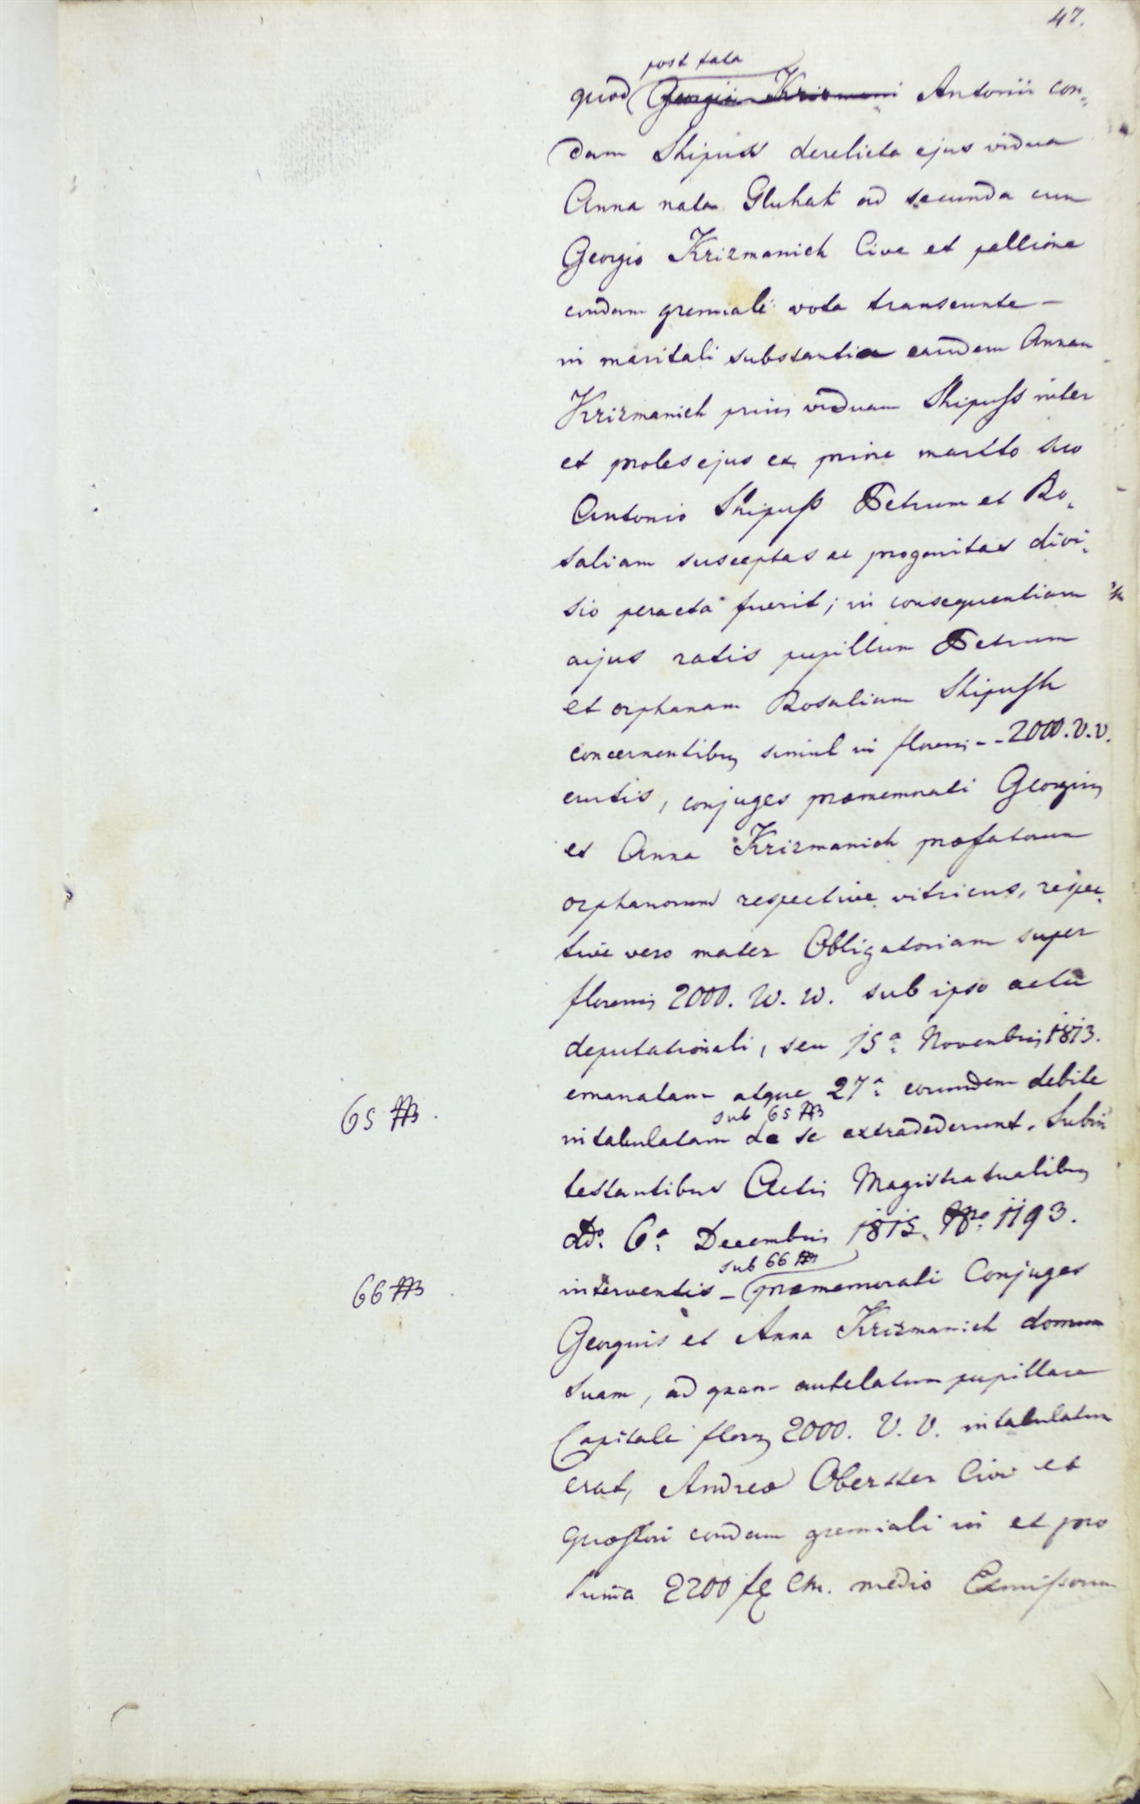 47.
post fata
quod Georgii Krizmani Antonii con-
dam Shipuss derelicta ejus vidua
Anna nata Gluhak ad secunda cum
Georgio Krizmanich Cive et pellione
condam gremiali vota transeunte -
in maritali substantia eandem Annam
Krizmanich prius viduam Shipuss inter
et proles ejus ex priore maritto suo
Antonio Shipuss Petrum et Ro-
saliam susceptas ac progenitas divi-
sio peracta fuerit; in consequentiam
cujus ratis pupillum Petrum
et orphanam Rosaliam Shipush
concernentibus simul in florenis - - 2000. V. V.
erutis, conjuges praememorati Georgius
et Anna Krizmanich praefatorum
orphanorum respective vitricus, respec-
tive vero mater Obligatoriam super
florenis 2000. W. W. sub ipso actu
deputationali, seu 15a Novembris 1813.
emanatam atque 27a eorumdem debite
sub 65
65
intabulatam de se extradederunt. Subin
testantibus Actis Magistratualibus
ddo. 6a Decembris 1815. Nro. 1193.
sub 66
66
interventis - praememorati Conjuges
Georgius et Anna Krizmanich domum
suam, ad quam antelatum pupillare
Capitale floren 2000. V. V. intabulatum
erat, Andreae Oberster Civi et
quaestori condam gremiali in et pro
Suma 2200 fl CM. medio Exmissorum